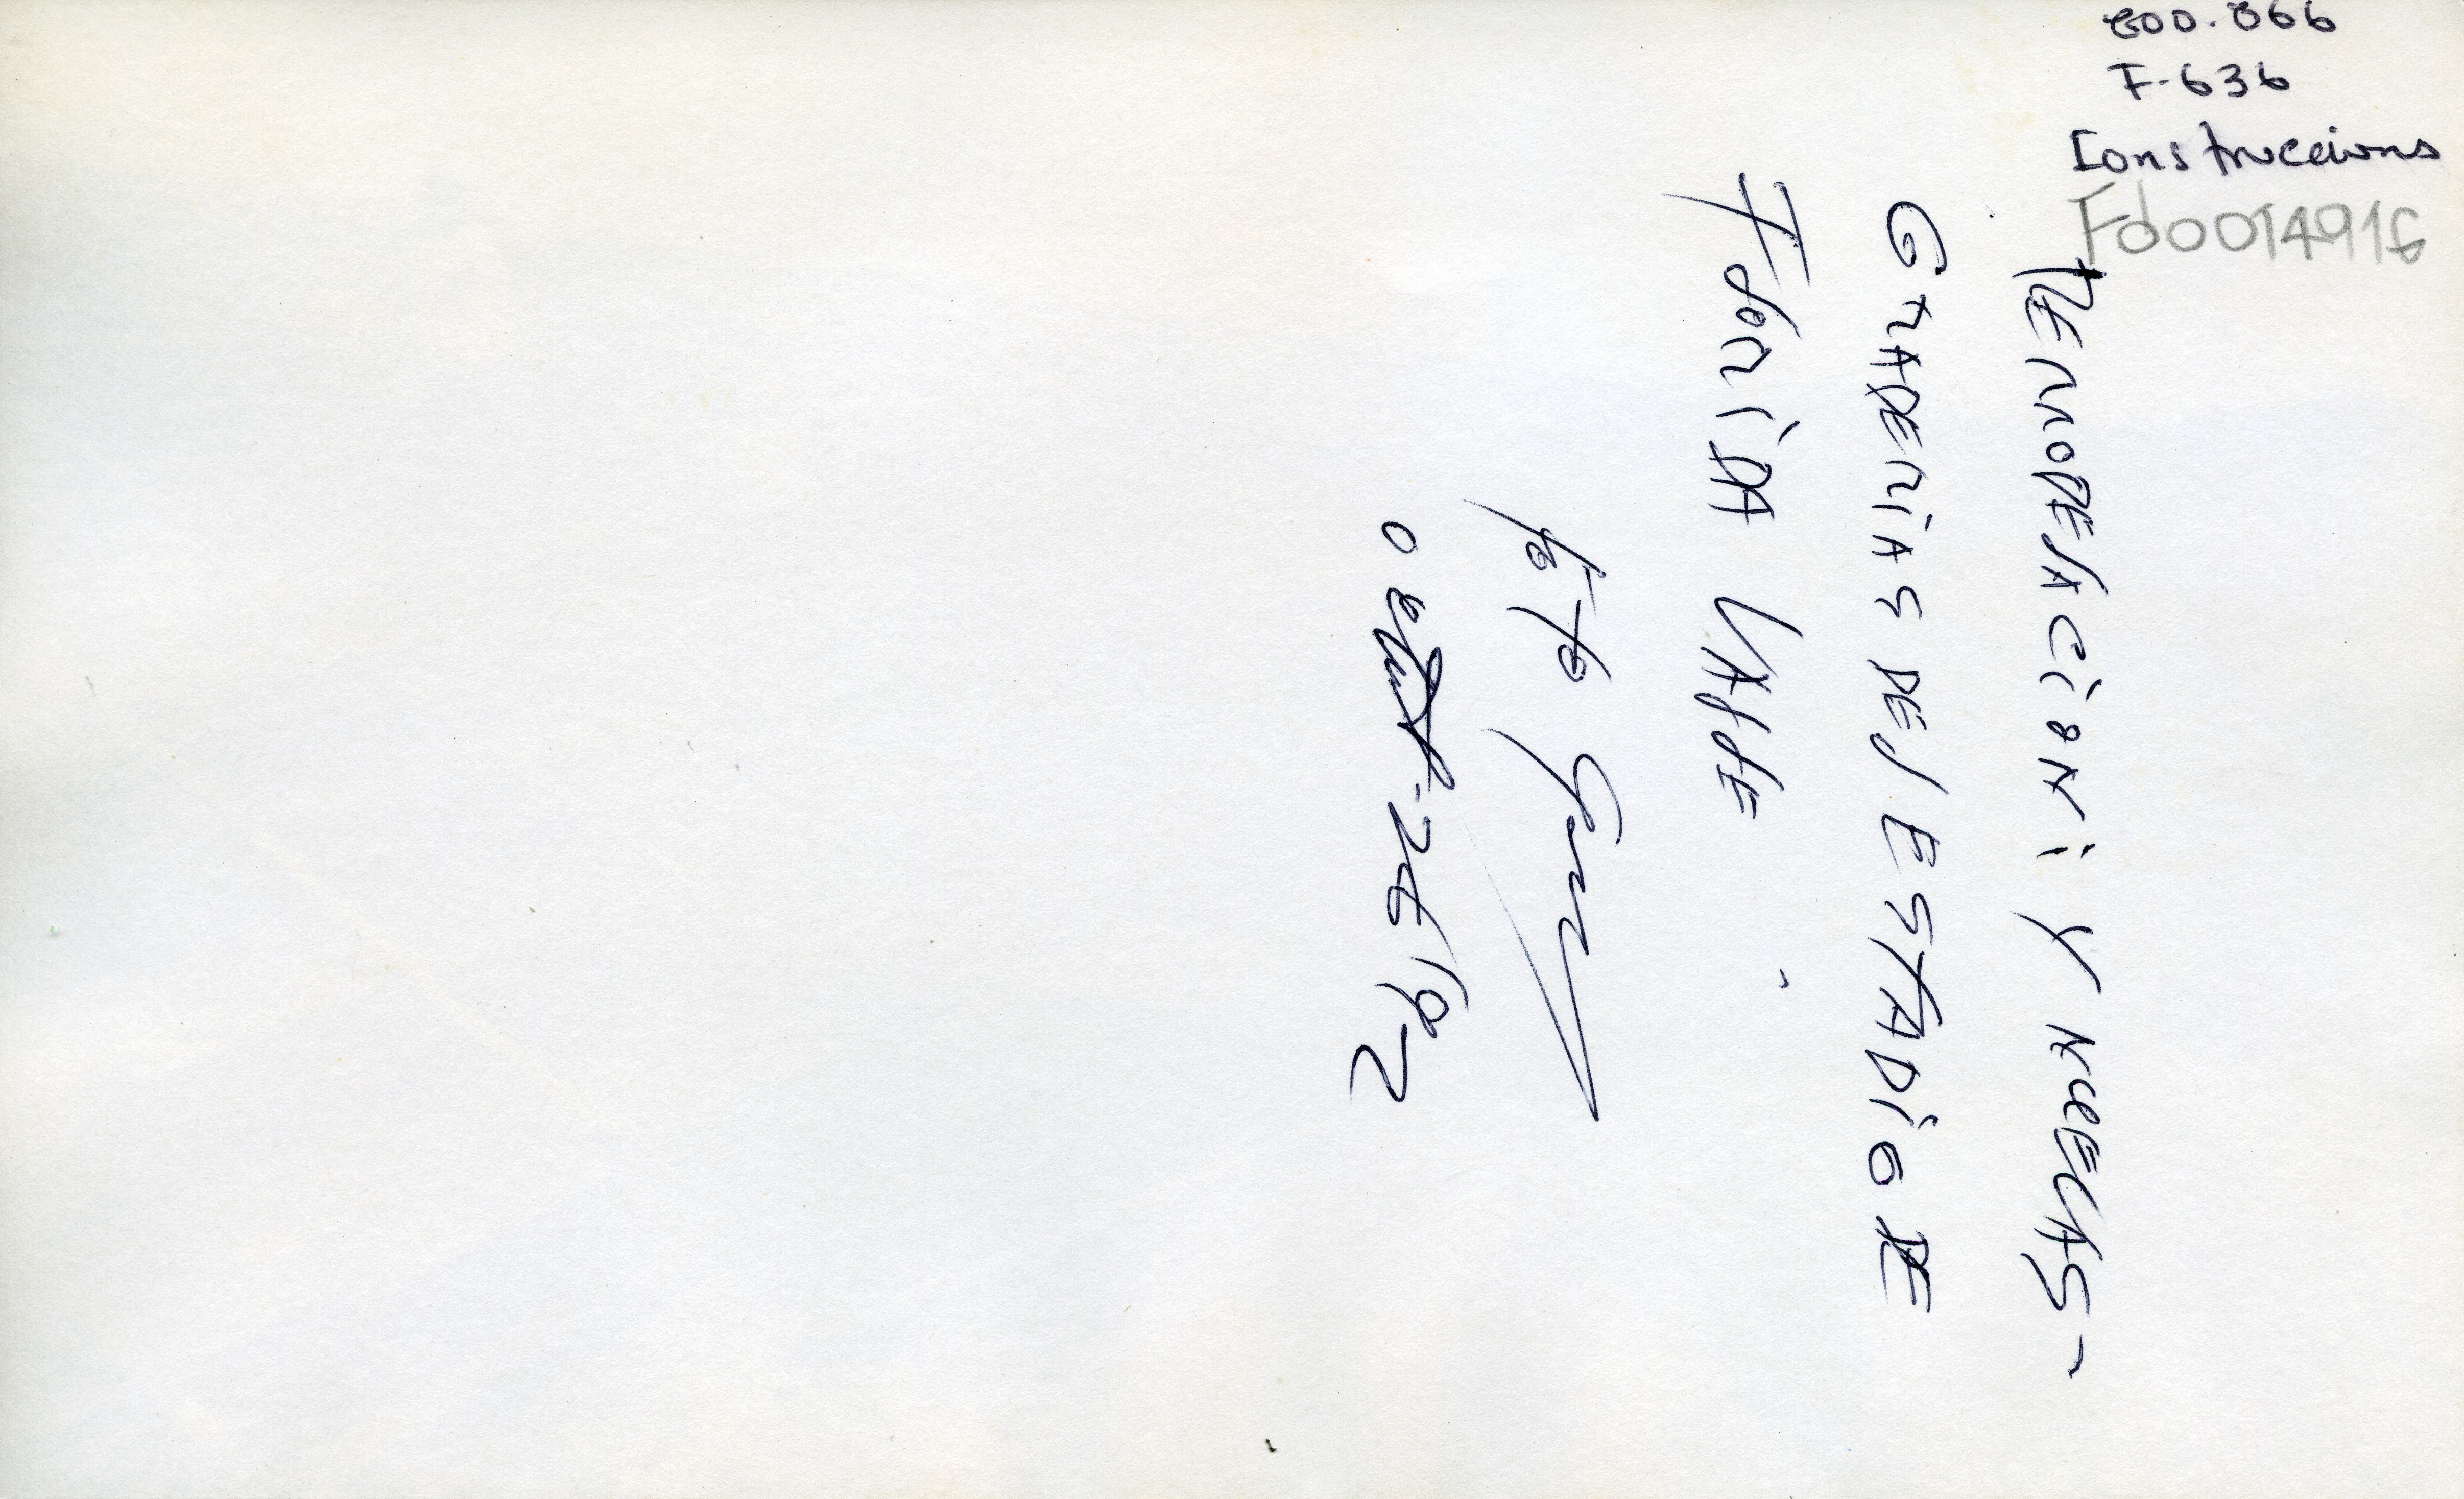 800.866
F-636
Construccions
Fd0014916
REMODELACIONi Y NUEVAS-
GRADERIAS DEL ESTADIO DE
FloriDA VAllE
foto
enero-25/92